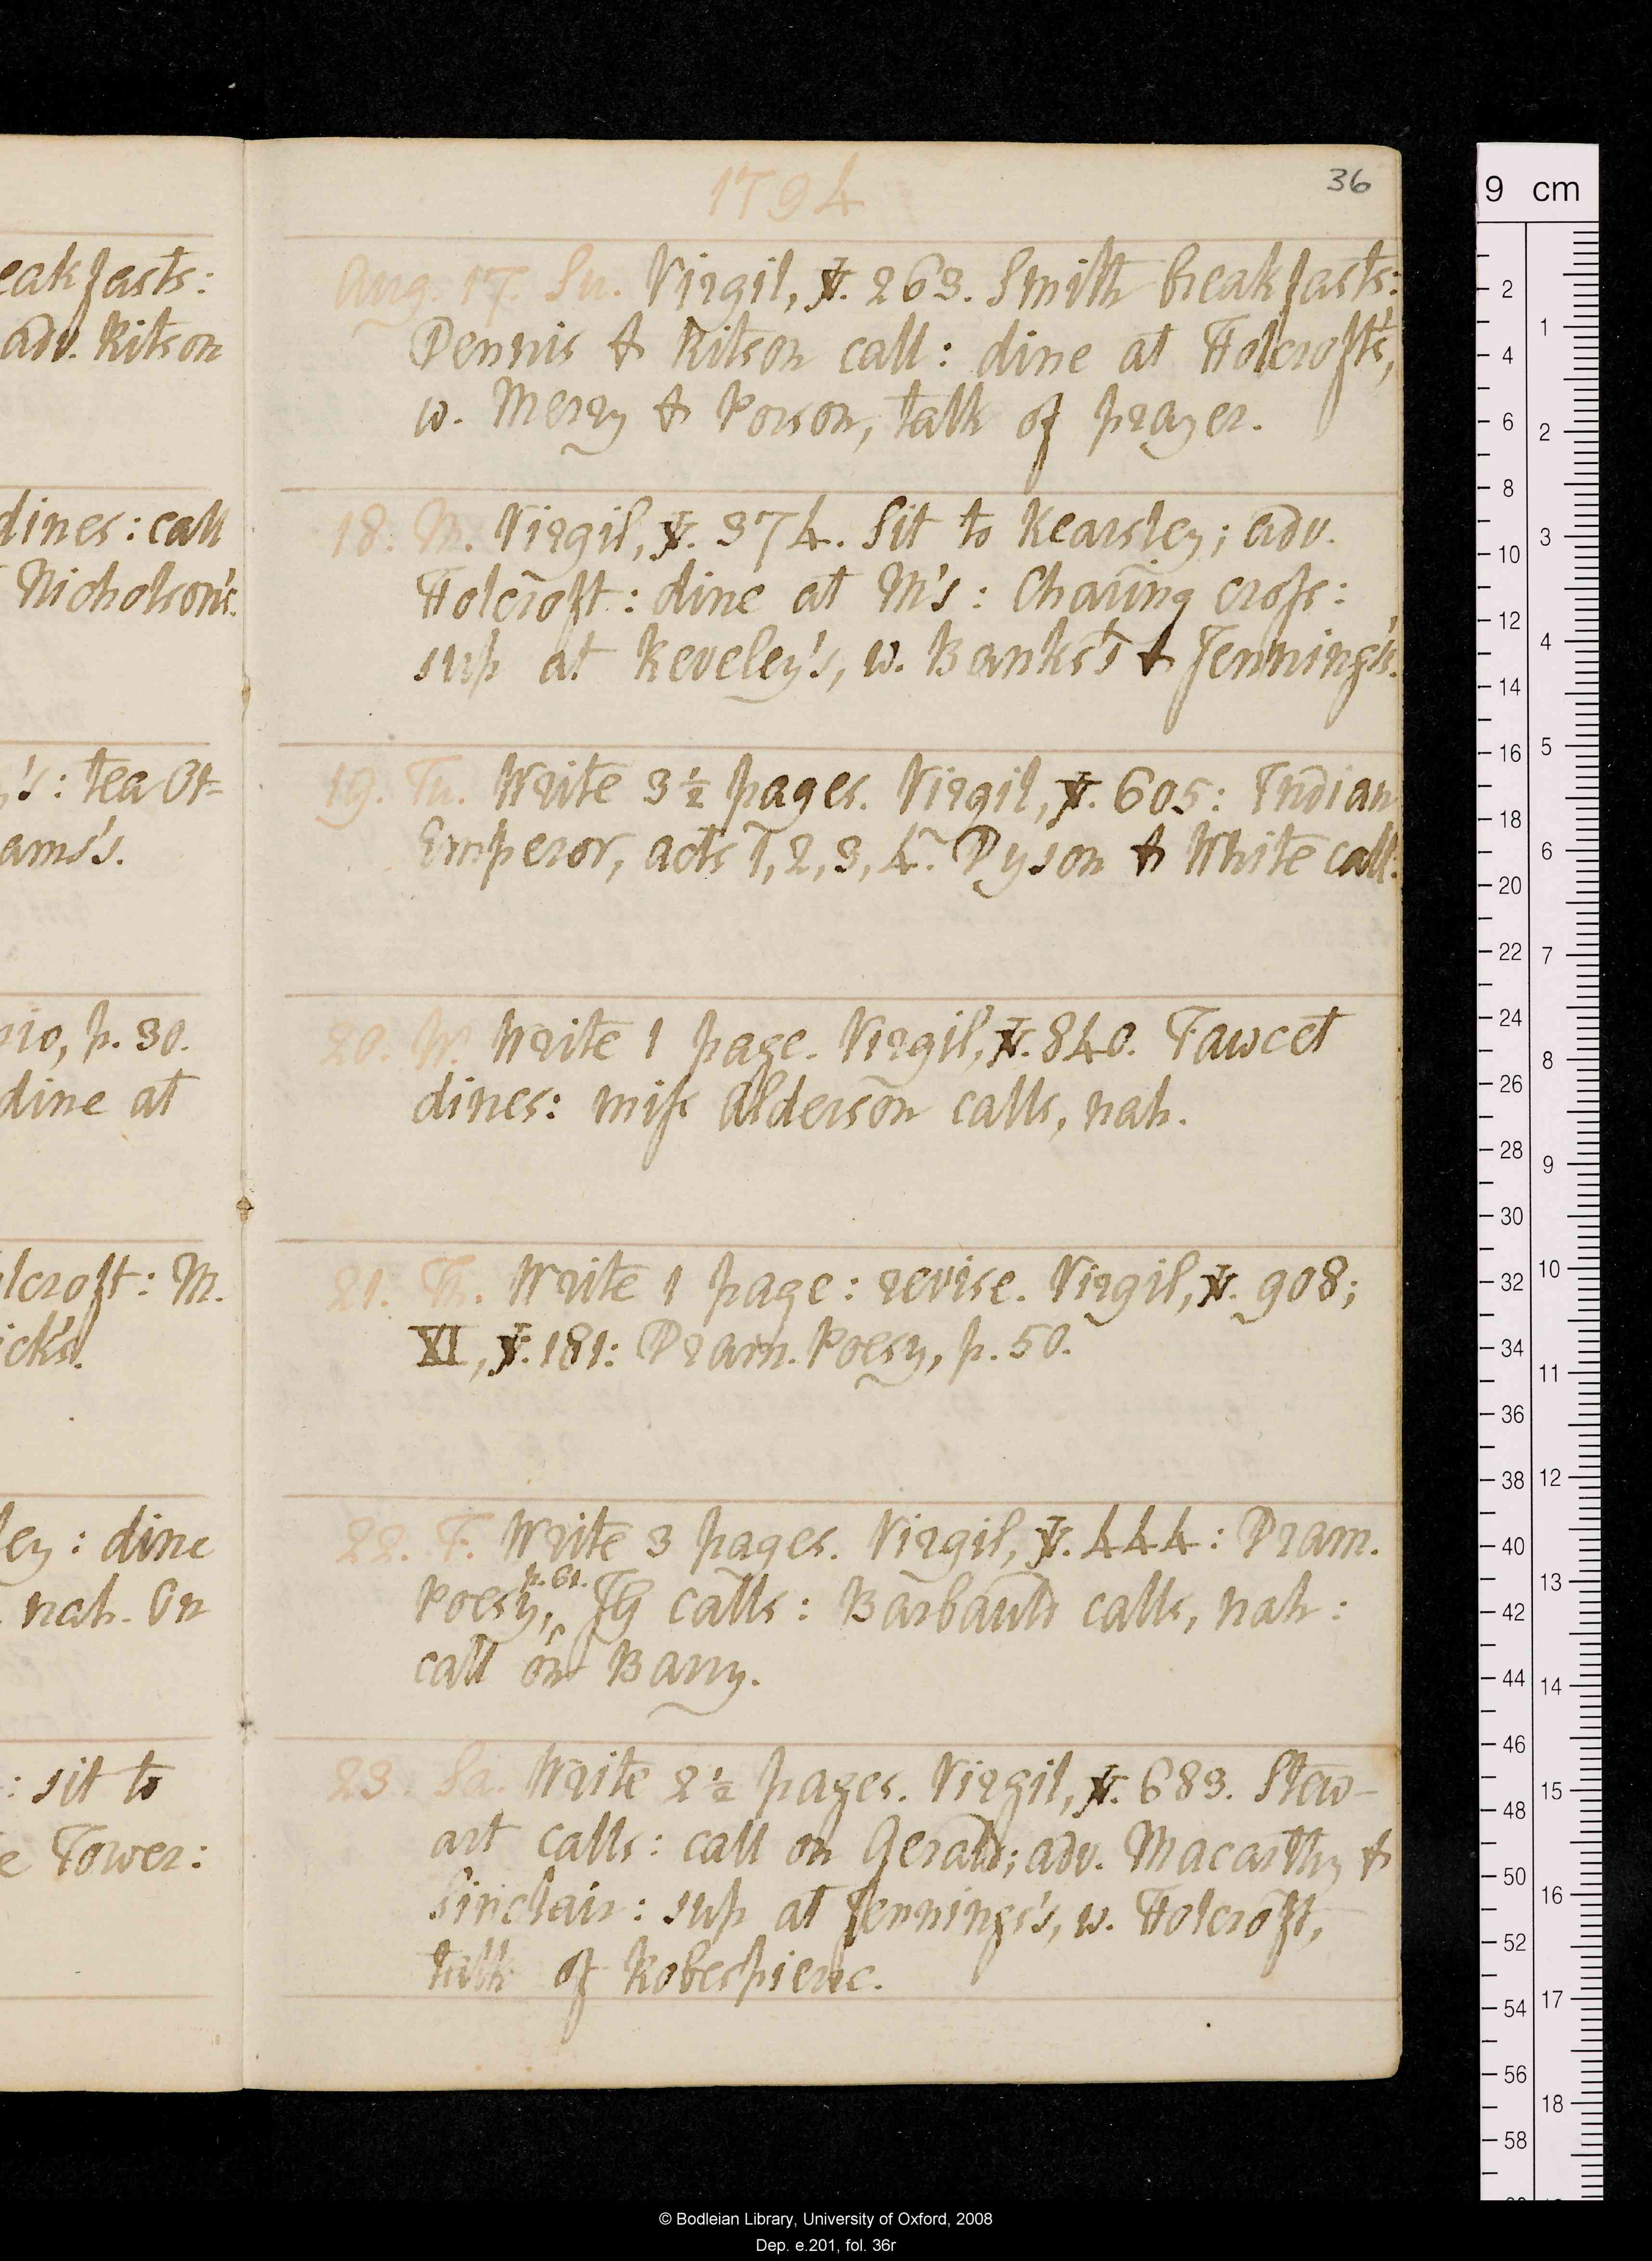 eakfasts:
adv. Ritson
dines: call
Nicholson's.
's: tea Ot=
ams's.
p. 30.
dine at
lcroft: M.
ick's.
ley: dine
nah. On
: sit to
e Tower:
1794
36
Aug. 17. Su. Virgil, ℣. 263. Smith breakfasts:
Dennis & Ritson call: dine at Holcroft's,
w. Merry & Porson, talk of prayer.
18. M. Virgil, ℣. 374. Sit to Kearsley; adv.
Holcroft: dine at M's: Charing cross:
sup at Reveley's, w. Banks's & Jennings's.
19. Tu. Write 3½ pages. Virgil, ℣. 605: Indian
Emperor, acts 1, 2, 3, 4. Dyson & White call.
20. W. Write 1 page. Virgil, ℣. 840. Fawcet
dines: miss Alderson calls, nah.
21. Th. Write 1 page: revise. Virgil, ℣. 908;
XI, ℣. 181: Dram. Poesy, p. 50.
22. F. Write 3 pages. Virgil, ℣. 444: Dram.
Poesy, ^p. 61. TH calls: Barbauld calls, nah:
call on Barry.
23. Sa. Write 2½ pages. Virgil, ℣. 683. Stew-
art calls: call on Gerald; adv. Macarthy &
Sinclair: sup at Jennings's, w. Holcroft,
talk of Robespierre.
9 cm
2
4
6
8
10
12
14
16
18
20
22
24
26
28
30
32
34
36
38
40
42
44
46
48
50
52
54
56
58
1
2
3
4
5
6
7
8
9
10
11
12
13
14
15
16
17
18
© Bodleian Library, University of Oxford, 2008
Dep. e.201, fol. 36r